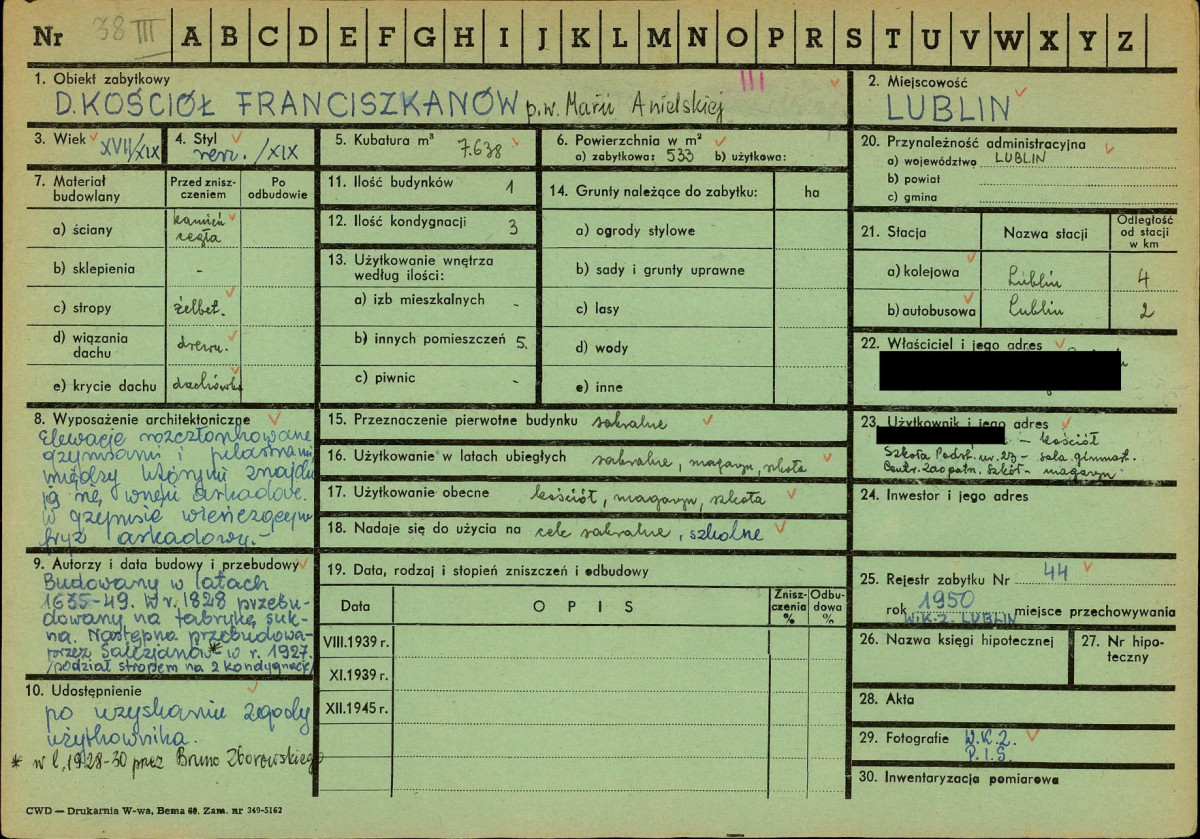 Nr 38 III A B C D E F G H I J K L M N O P R S T U V W X Y Z
1. Obiekt zabytkowy III
D. KOŚCIÓŁ FRANCISZKANÓW p.w. Marii Anielskiej
2. Miejscowość
LUBLIN
3. Wiek XVII/XIX
4. Styl
renz. /XIX
5. Kubatura m³
7.638
6. Powierzchnia w m²
a) zabytkowa: 533 b) użytkowa:
20. Przynależność administracyjna
a) województwo LUBLIN
b) powiat
c) gmina
7. Materiał budowlany
Przed znisz-
czeniem
Po
odbudowie
a) ściany kamień
cegła
b) sklepienia -
c) stropy żelbet.
d) wiązania
dachu drewn.
e) krycie dachu dachówka
11. Ilość budynków 1
12. Ilość kondygnacji 3
13. Użytkowanie wnętrza
według ilości:
a) izb mieszkalnych -
b) innych pomieszczeń 5.
c) piwnic -
14. Grunty należące do zabytku: ha
a) ogrody stylowe
b) sady i grunty uprawne
c) lasy
d) wody
e) inne
21. Stacja Nazwa stacji
Odległość
od stacji
w km
a) kolejowa Lublin 4
b) autobusowa Lublin 2
22. Właściciel i jego adres
8. Wyposażenie architektoniczne
Elewacje rozczłonkowane
gzymsami i pilastrami
między którymi znajdu
ją się wnęki arkadowe.
W gzymsie wieńczącym
fryz arkadowy.-
15. Przeznaczenie pierwotne budynku sakralne
16. Użytkowanie w latach ubiegłych sakralne, magazyn, szkoła
17. Użytkowanie obecne kościół, magazyn, szkoła
18. Nadaje się do użycia na cele sakralne, szkolne
23. Użytkownik i jego adres
- kościół
Szkoła Podst. nr. 23 - sala gimnast.
Centr. Zaopatrz. Szkół - magazyn
24. Inwestor i jego adres
9. Autorzy i data budowy i przebudowy
Budowany w latach
1635-49. W r. 1828 przebu-
dowany na fabrykę suk-
na. Następna przebudowa-
przez Salezjanów * w r. 1927.
/podział stropem na 2 kondygnacje/
19. Data, rodzaj i stopień zniszczeń i odbudowy
Data OPIS
Znisz-
czenia
%
Odbu-
dowa
%
VIII.1939 r.
XI.1939 r.
XII.1945 r.
25. Rejestr zabytku Nr 44
rok 1950 miejsce przechowywania
W.K.Z. LUBLIN
26. Nazwa księgi hipotecznej
27. Nr hipo-
teczny
28. Akta
10. Udostępnienie
po uzyskaniu zgody
użytkownika.
* w l. 1928-30 przez Bruno Zborowskiego
29. Fotografie W.K.Z.
P.I.S.
30. Inwentaryzacja pomiarowa
CWD — Drukarnia W-wa, Bema 60. Zam. nr 349-5162